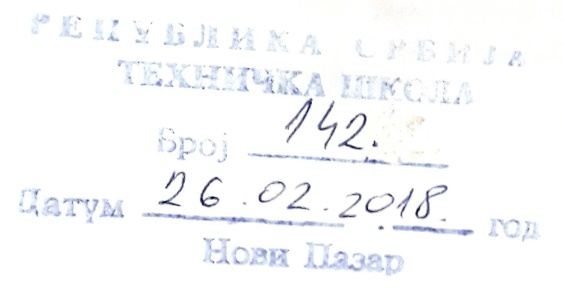 РЕПУБЛИКА СРБИЈА
ТЕХНИЧКА ШКОЛА
Број 142.
Датум 26.02.2018. год
Нови Пазар